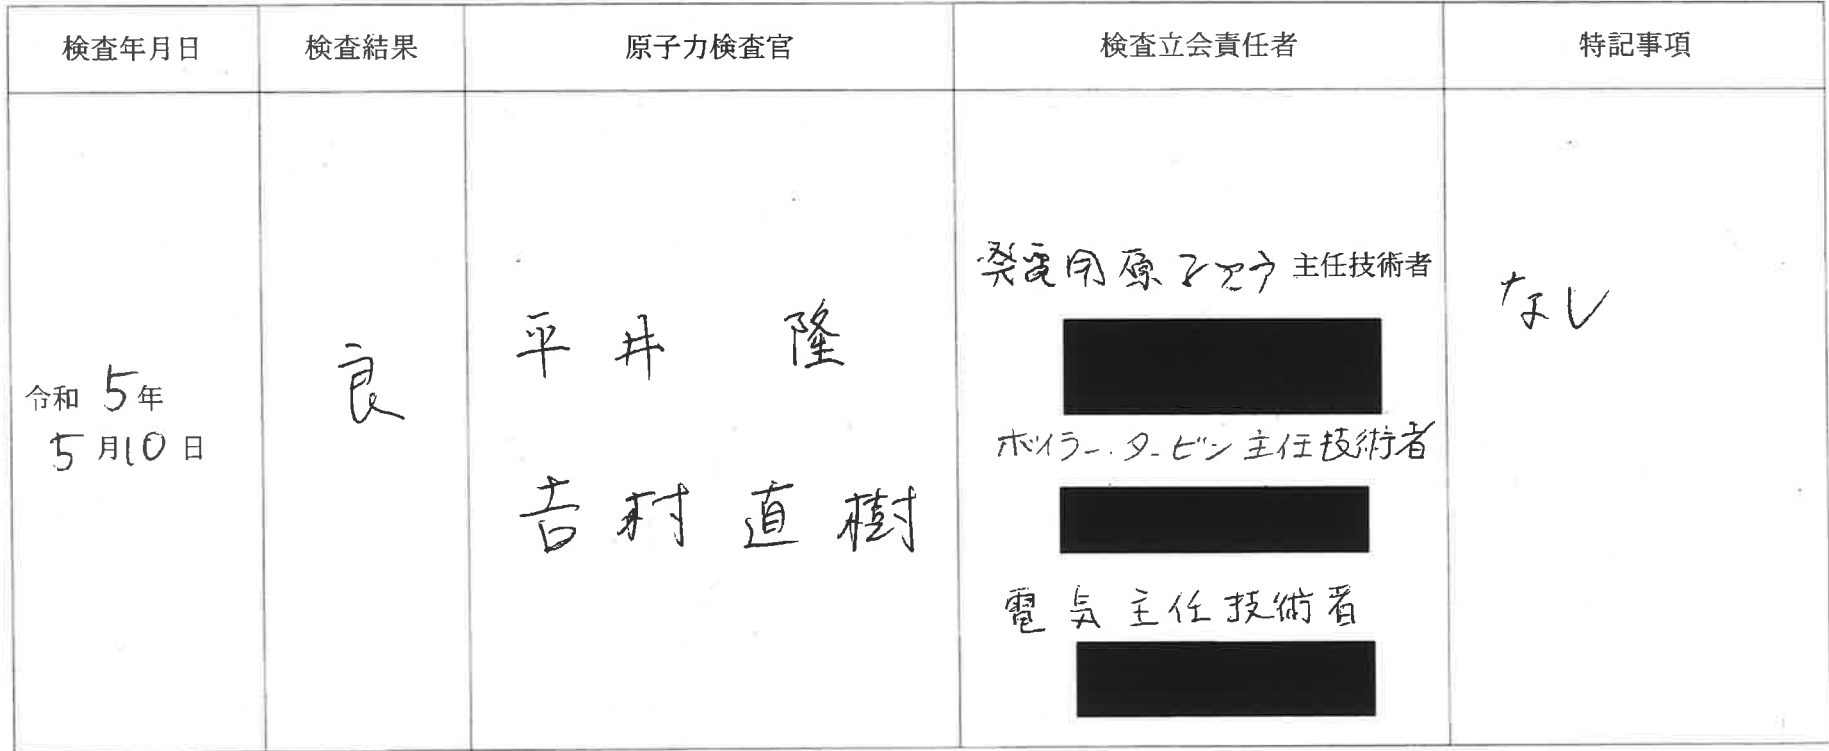 検査年月日 検査結果 原子力検査官 検査立会責任者 特記事項
令和 5年
5月10日
良
平井 隆
吉村直樹
発電用原子炉主任技術者
ボイラー・タービン主任技術者
電気主任技術者
なし